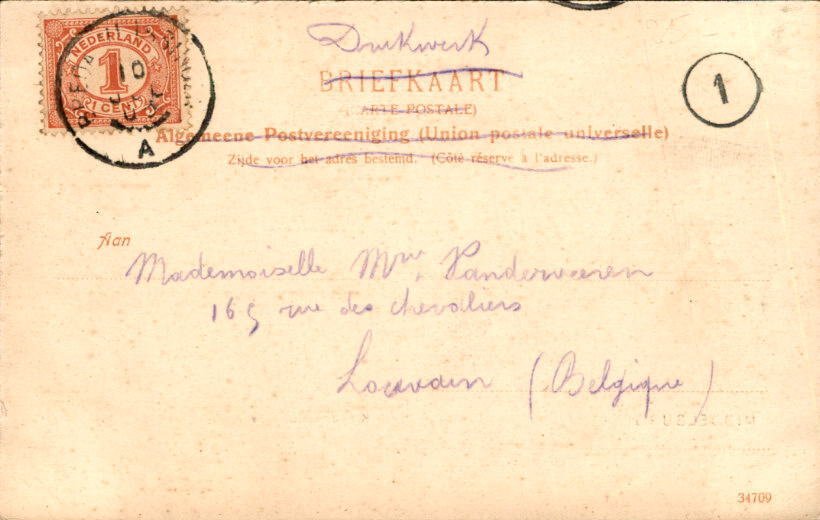 NEDERLAND
1
CENT
10
A
1
Drukwerk
BRIEFKAART
(CARTE POSTALE)
Algemeene Postvereeniging (Union postale universelle)
Zijde voor het adres bestemd. (Côté réservé à l'adresse.)
Aan
Mademoiselle Mme Vanderweeren
165 rue des chevaliers
Louvain (Belgique)
34709